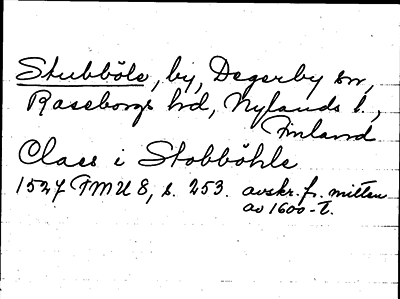 Stubböle, by, Degerby sn,
Raseborgs hd, Nylands l.,
Finland
Claes i Stobböhle
1527 FMU 8, s. 253. avskr. fr. mitten
av 1600-t.